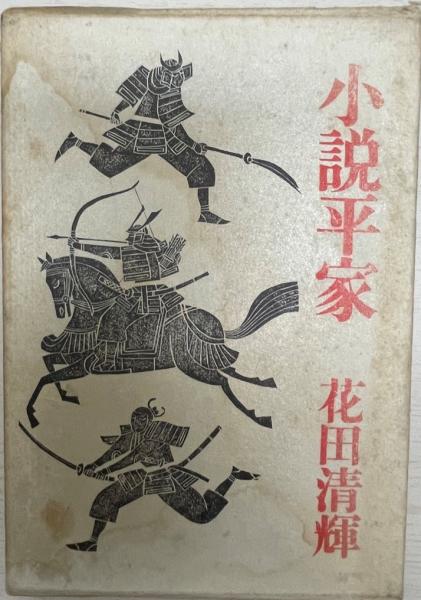 小説平家
花田清輝